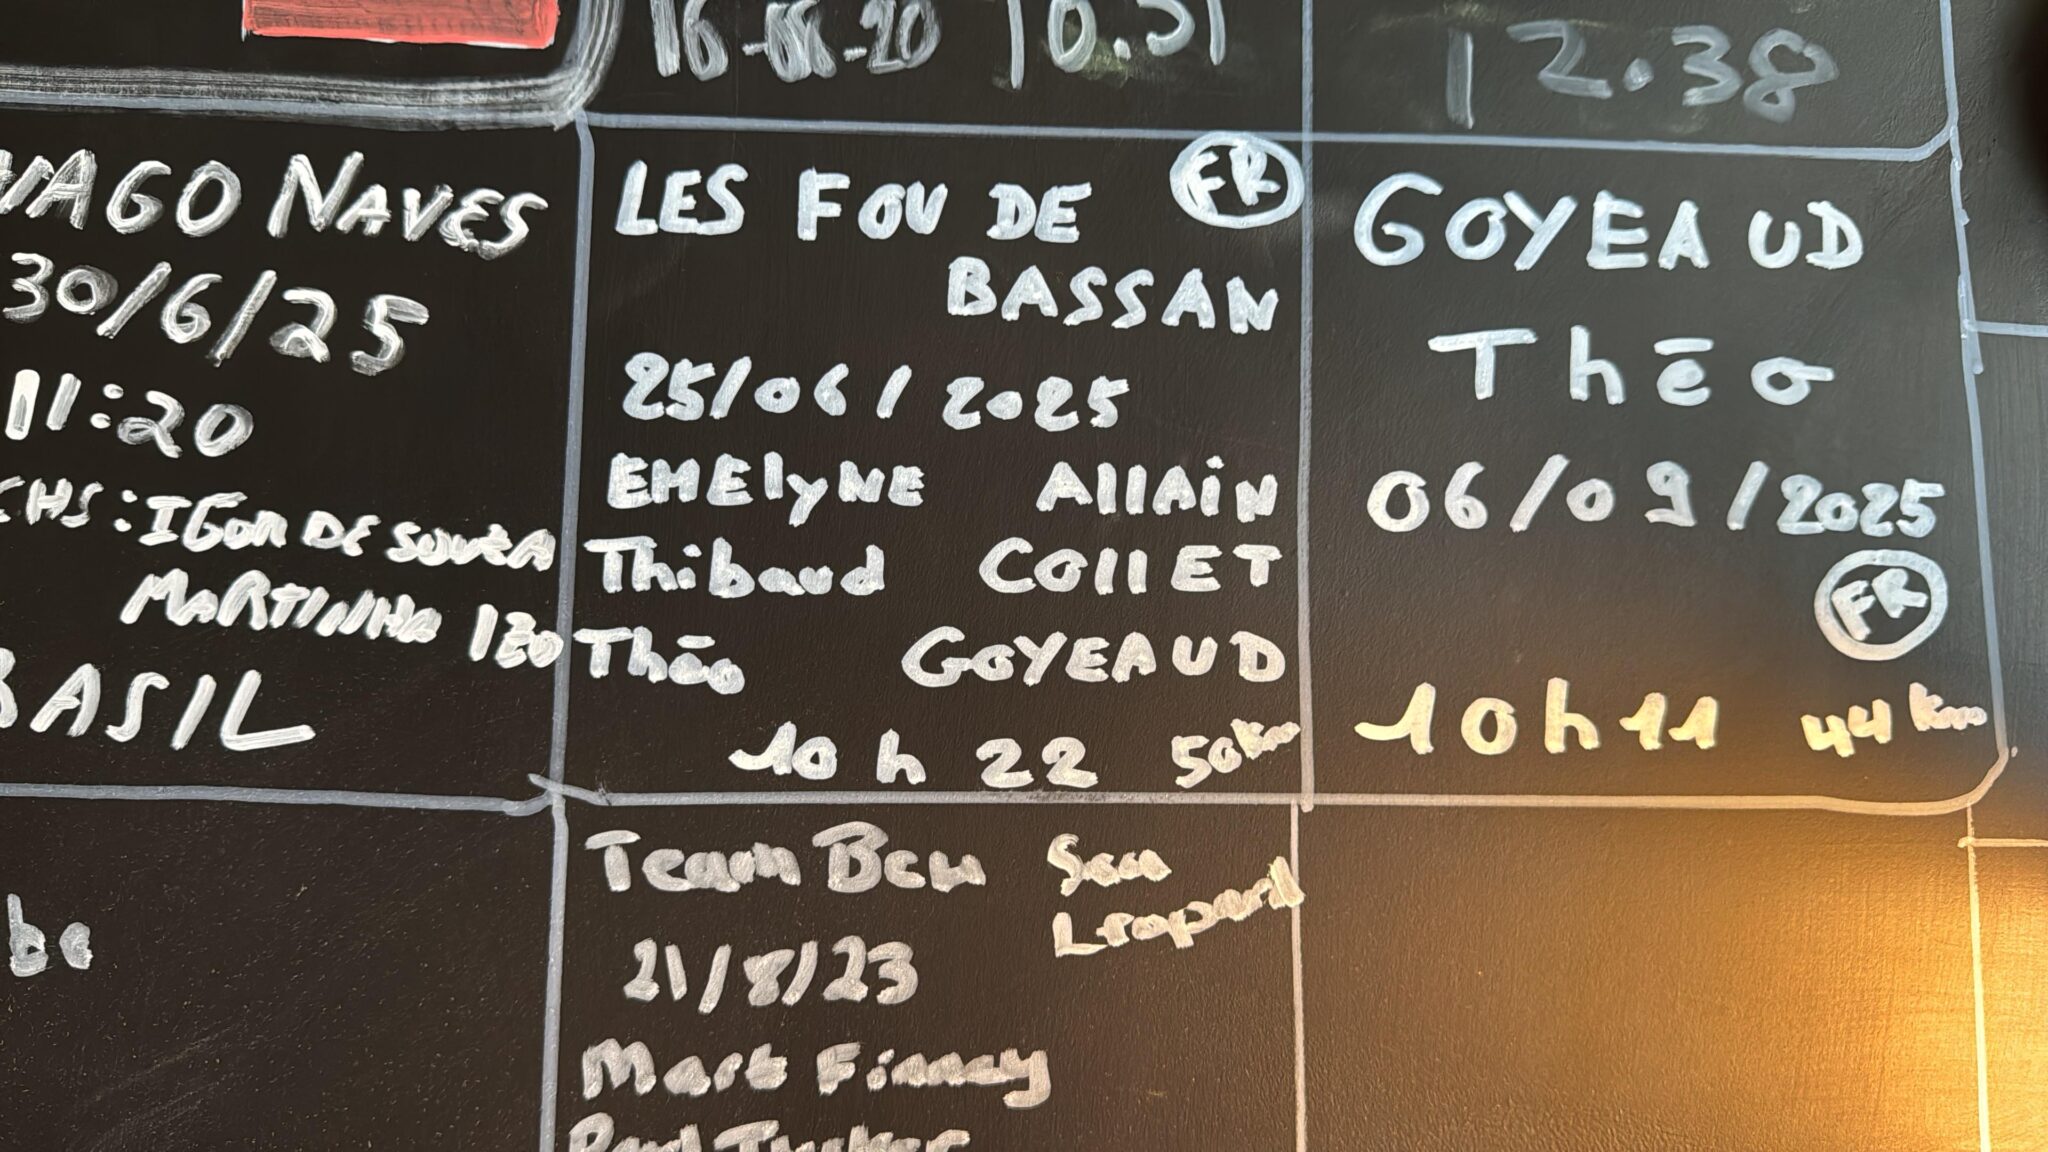 16-06-20 10.31
12.38
IAGO NAVES
30/6/25
11:20
CHS: IGOR DE SOUZA
MARTINHO IZO
BASIL
LES FOU DE FR
BASSAN
25/06/2025
EMElyNE AllAiN
Thibaud COllET
Théo GOYEAUD
10h22 50km
GOYEAUD
Théo
06/09/2025
FR
10h11 44km
Team Ben Sea
Leopard
21/8/23
Mark Finney
Paul Tucker